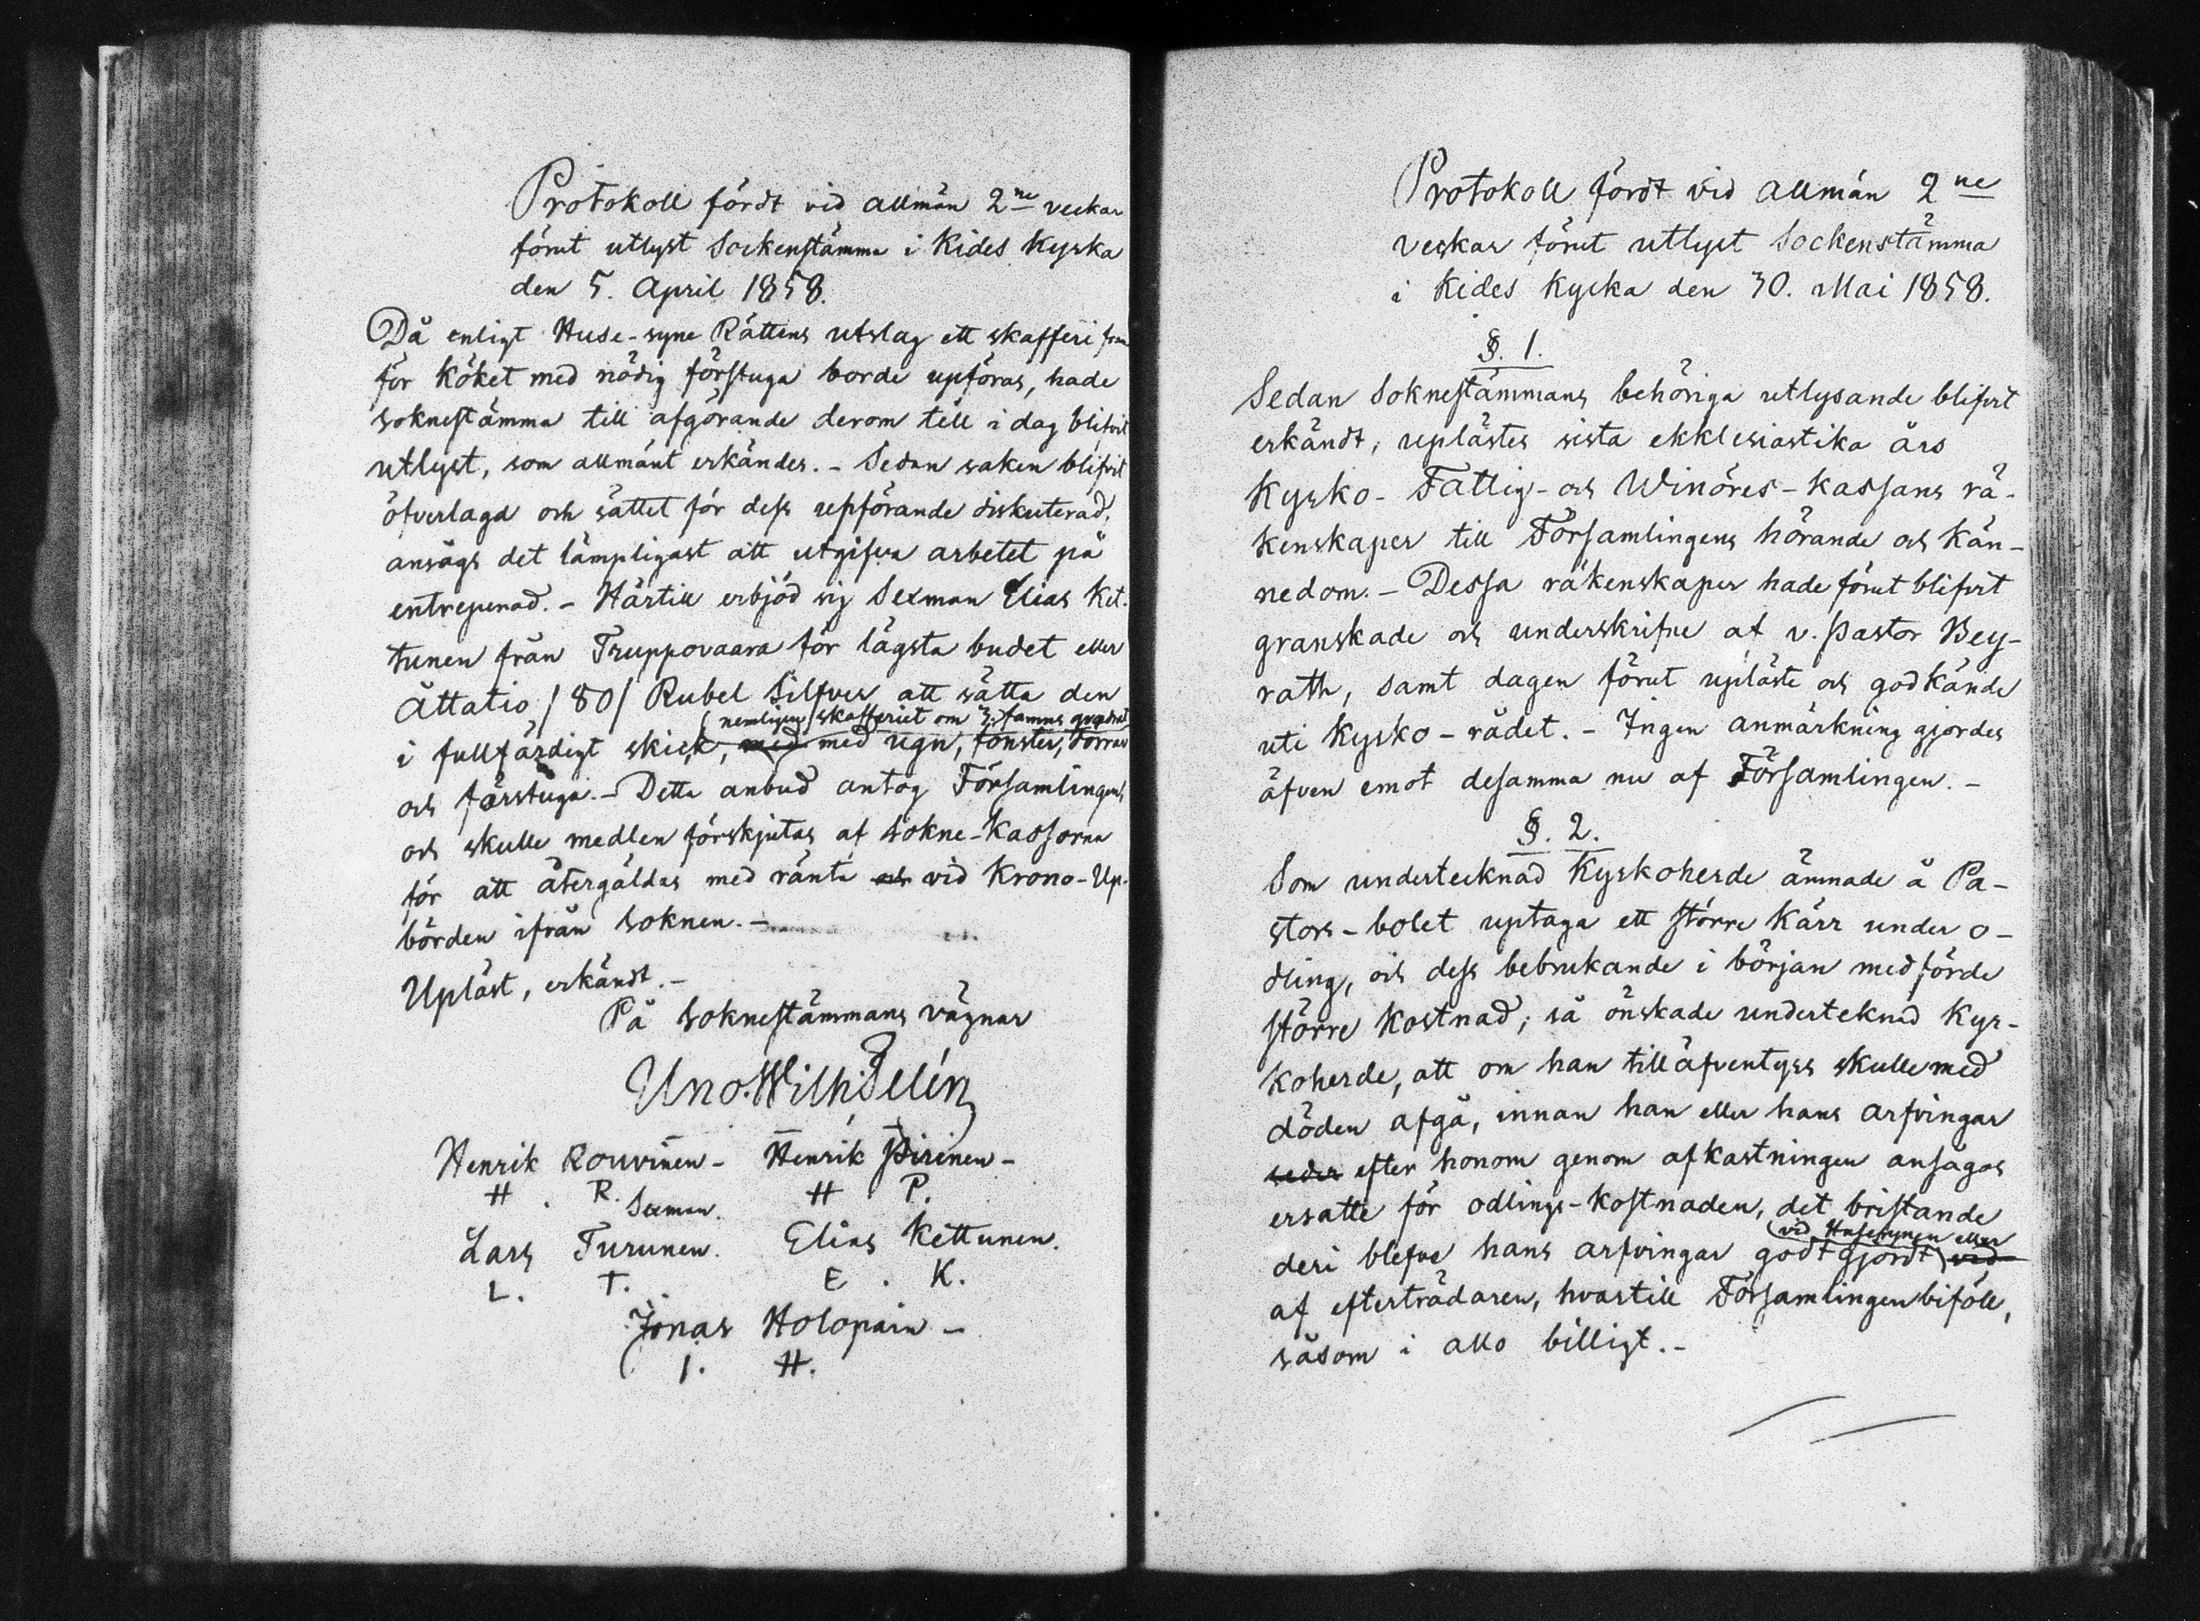 Protokoll fördt vid allmän 2ne veckor
förut utlyst Sockenstämma i Kides Kyrka
den 5. April 1858.
Då enligt Huse-syne Rättens utslag ett skafferi fram
för köket med nödig förstuga borde upföras, hade
soknestämma till afgörande derom till i dag blifvit
utlyst, som allmänt erkändes. - Sedan saken blifvit
öfverlagd och sättet för dess upförande diskuterad,
ansågs det lämpligast att utgifva arbetet på
entreprenad. - Härtill erbjöd sig Sexman Elias Ket-
tunen från Truppovaara för lägsta budet eller
Åttatio /80/ Rubel Silfver att sätta den
nemligen skafferiet om 3. famns qvadrat
i fullfärdigt skick, med med ugn, fönster, dörrar
och förstuga. - Detta anbud antog Församlingen,
och skulle medlen förskjutas af sokne-kassorna
för att återgäldas med ränta och vid Krono-Up-
börden ifrån soknen. -
Upläst, erkändt. -
På soknestämmans vägnar
Uno. Wilh: Telén
Henrik Rouvinen - Henrik Pirinen -
H. R. H P.
Sexman.
Lars Turunen. Elias Kettunen.
L. T. E. K.
Jonas Holopain -
J. H.
Protokoll fördt vid allmän 2ne
veckor förut utlyst Sockenstämma
i Kides Kyrka den 30. Mai 1858.
§. 1.
Sedan Soknestämmans behöriga utlysande blifvit
erkändt, uplästes sista ekklesiastika års
Kyrko- Fattig- och Winöres-kassans rä-
kenskaper till Församlingens hörande och kän-
nedom. - Dessa räkenskaper hade förut blifvit
granskade och underskrifne af v. Pastor Bey-
rath, samt dagen förut upläste och godkände
uti Kyrko-rådet. - Ingen anmärkning gjordes
äfven emot desamma nu af Församlingen. -
§. 2.
Som undertecknad Kyrkoherde ämnade å Pa-
stors-bolet uptaga ett större Kärr under o-
dling, och dess bebrukande i början medförde
större kostnad; så önskade underteknad Kyr-
koherde, att om han till äfventyrs skulle med
döden afgå, innan han eller hans arfvingar
seder efter honom genom afkastningen ansågos
ersatte för odlings-kostnaden, det bristande
vid Husesynen eller
deri blefve hans arfvingar godtgjordt vid
af efterträdaren, hvartill Församlingen biföll,
såsom i allo billigt. -